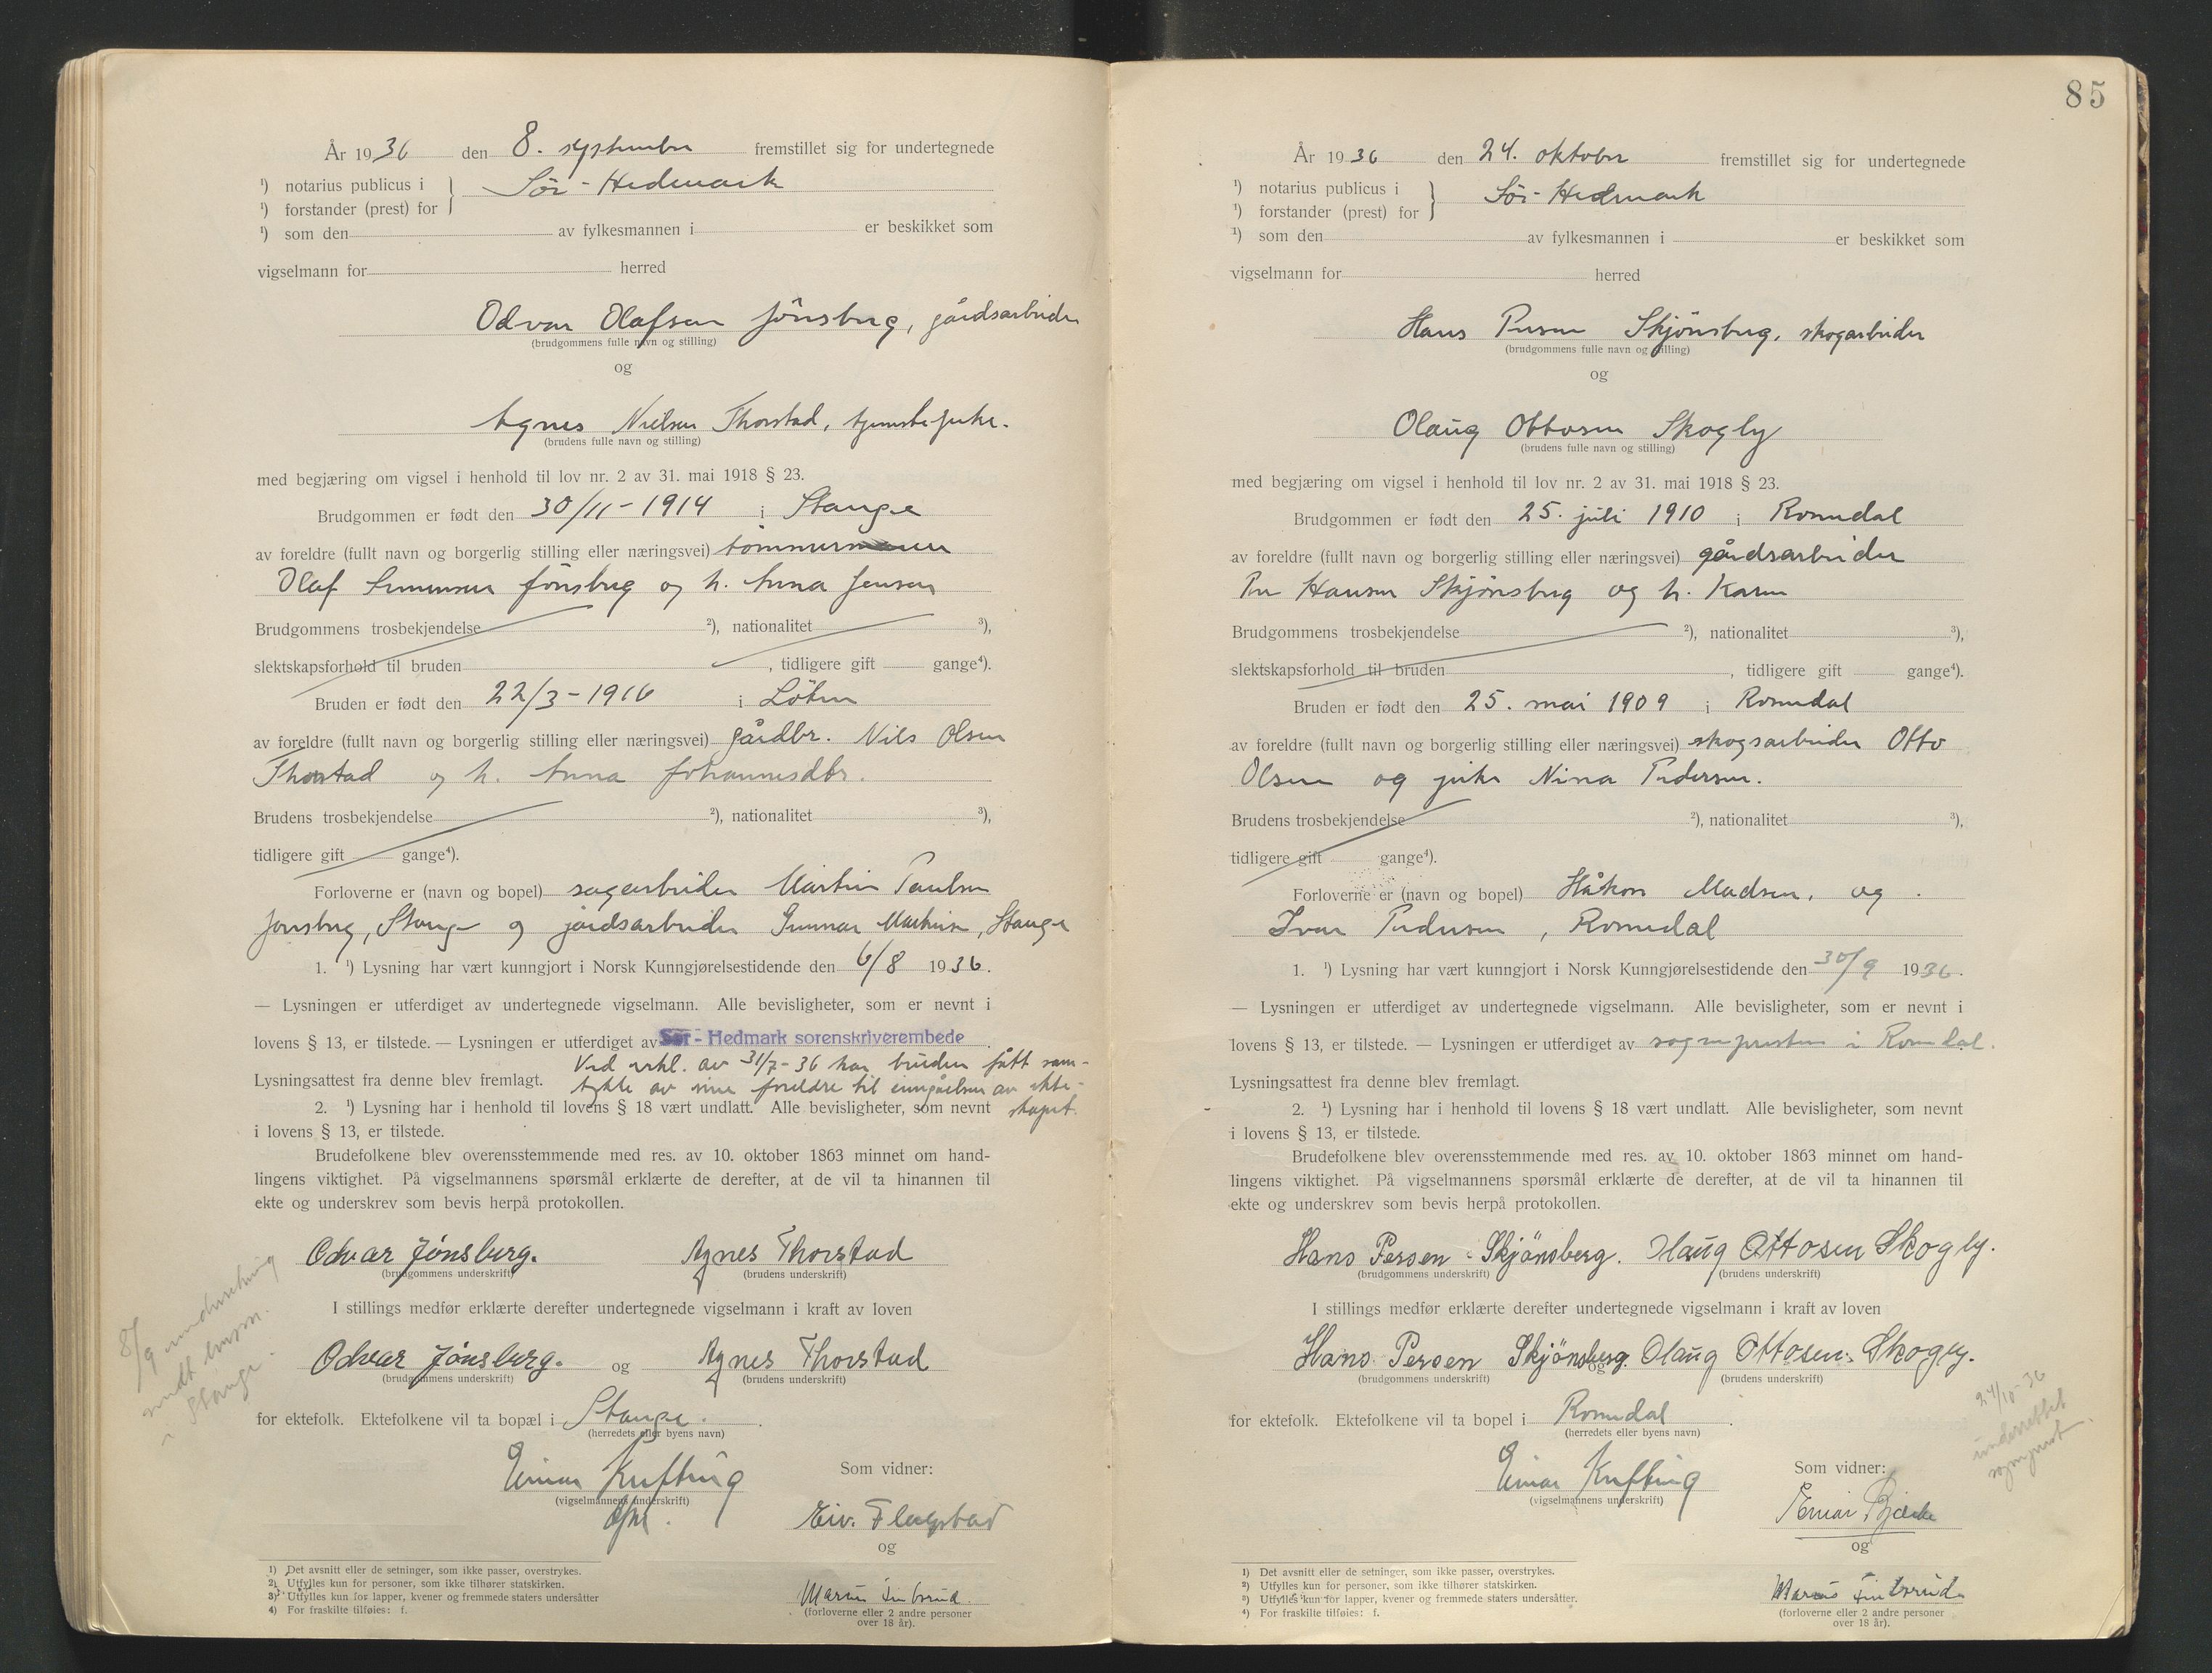 År 1936 den 8. september fremstillet sig for undertegnede
¹) notarius publicus i } Sör-Hedmark
¹) forstander (prest) for
¹) som den av fylkesmannen i er beskikket som
vigselmann for herred
Odvar Olafsen Jönsberg, gårdsarbeider
(brudgommens fulle navn og stilling)
og
Agnes Nielsen Thorstad, tjenestepike.
(brudens fulle navn og stilling)
med begjæring om vigsel i henhold til lov nr. 2 av 31. mai 1918 § 23.
Brudgommen er født den 30/11-1914 i Stange
av foreldre (fullt navn og borgerlig stilling eller næringsvei) tömmermann
Olaf Jönsberg og h. Anna Jensen
Brudgommens trosbekjendelse ²), nationalitet ³),
slektskapsforhold til bruden , tidligere gift gange⁴).
Bruden er født den 22/3-1916 i Löten
av foreldre (fullt navn og borgerlig stilling eller næringsvei) gårdbr. Nils Olsen
Thorstad og h. Anna Johannesdtr.
Brudens trosbekjendelse ²), nationalitet ³),
tidligere gift gange⁴).
Forloverne er (navn og bopel) sagarbeider Martin Paulsen
Jönsberg, Stange og gårdsarbeider Gunnar Martinsen, Stange
1. ¹) Lysning har vært kunngjort i Norsk Kunngjørelsestidende den 6/8 1936.
— Lysningen er utferdiget av undertegnede vigselmann. Alle bevisligheter, som er nevnt i
lovens § 13, er tilstede. — Lysningen er utferdiget av Sør-Hedmark sorenskriverembede.
Ved erkl. av 31/7-36 har bruden fått sam-
Lysningsattest fra denne blev fremlagt. tykke av sine foreldre til inngåelsen av ekte-
2. ¹) Lysning har i henhold til lovens § 18 vært undlatt. Alle bevisligheter, som nevnt skapet.
i lovens § 13, er tilstede.
Brudefolkene blev overensstemmende med res. av 10. oktober 1863 minnet om hand-
lingens viktighet. På vigselmannens spørsmål erklærte de derefter, at de vil ta hinannen til
ekte og underskrev som bevis herpå protokollen.
Odvar Jønsberg. Agnes Thorstad
(brudgommens underskrift) (brudens underskrift)
I stillings medfør erklærte derefter undertegnede vigselmann i kraft av loven
Odvar Jønsberg. og Agnes Thorstad
(brudgommens underskrift) (brudens underskrift)
for ektefolk. Ektefolkene vil ta bopæl i Stange.
(herredets eller byens navn)
Einar Kufting Som vidner:
(vigselmannens underskrift)
Eiv. Flagstad
og
(forloverne eller 2 andre personer
over 18 år).
8/9 underretning
sendt
i Stange.
1) Det avsnitt eller de setninger, som ikke passer, overstrykes.
2) Utfylles kun for personer, som ikke tilhører statskirken.
3) Utfylles kun for lapper, kvener og fremmede staters undersåtter
4) For fraskilte tilføies: f.
85
År 1936 den 24. oktober fremstillet sig for undertegnede
¹) notarius publicus i } Sör-Hedmark
¹) forstander (prest) for
¹) som den av fylkesmannen i er beskikket som
vigselmann for herred
Hans Persen Skjönsberg, skogarbeider
(brudgommens fulle navn og stilling)
og
Olaug Ottosen Skogly
(brudens fulle navn og stilling)
med begjæring om vigsel i henhold til lov nr. 2 av 31. mai 1918 § 23.
Brudgommen er født den 25. juli 1910 i Romedal
av foreldre (fullt navn og borgerlig stilling eller næringsvei) gårdsarbeider
Per Hansen Skjönsberg og h. Karen
Brudgommens trosbekjendelse ²), nationalitet ³),
slektskapsforhold til bruden , tidligere gift gange⁴).
Bruden er født den 25. mai 1909 i Romedal
av foreldre (fullt navn og borgerlig stilling eller næringsvei) skogsarbeider Otto
Olsen og pike Nina Pedersen.
Brudens trosbekjendelse ²), nationalitet ³),
tidligere gift gange⁴).
Forloverne er (navn og bopel) Håkon Madsen, og
Ivar Pedersen, Romedal
1. ¹) Lysning har vært kunngjort i Norsk Kunngjørelsestidende den 30/9 1936.
— Lysningen er utferdiget av undertegnede vigselmann. Alle bevisligheter, som er nevnt i
lovens § 13, er tilstede. — Lysningen er utferdiget av sognepresten i Romedal.
Lysningsattest fra denne blev fremlagt.
2. ¹) Lysning har i henhold til lovens § 18 vært undlatt. Alle bevisligheter, som nevnt
i lovens § 13, er tilstede.
Brudefolkene blev overensstemmende med res. av 10. oktober 1863 minnet om hand-
lingens viktighet. På vigselmannens spørsmål erklærte de derefter, at de vil ta hinannen til
ekte og underskrev som bevis herpå protokollen.
Hans Persen Skjönsberg. Olaug Ottosen Skogly.
(brudgommens underskrift) (brudens underskrift)
I stillings medfør erklærte derefter undertegnede vigselmann i kraft av loven
Hans Persen Skjönsberg. og Olaug Ottosen Skogly.
(brudgommens underskrift) (brudens underskrift)
for ektefolk. Ektefolkene vil ta bopel i Romedal.
(herredets eller byens navn)
Einar Kufting Som vidner:
(vigselmannens underskrift)
og
(forloverne eller 2 andre personer
over 18 år).
24/10-36
underrettet
sogneprest
1) Det avsnitt eller de setninger, som ikke passer, overstrykes.
²) Utfylles kun for personer, som ikke tilhører statskirken.
³) Utfylles kun for lapper, kvener og fremmede staters undersåtter.
⁴) For fraskilte tilføies: f.